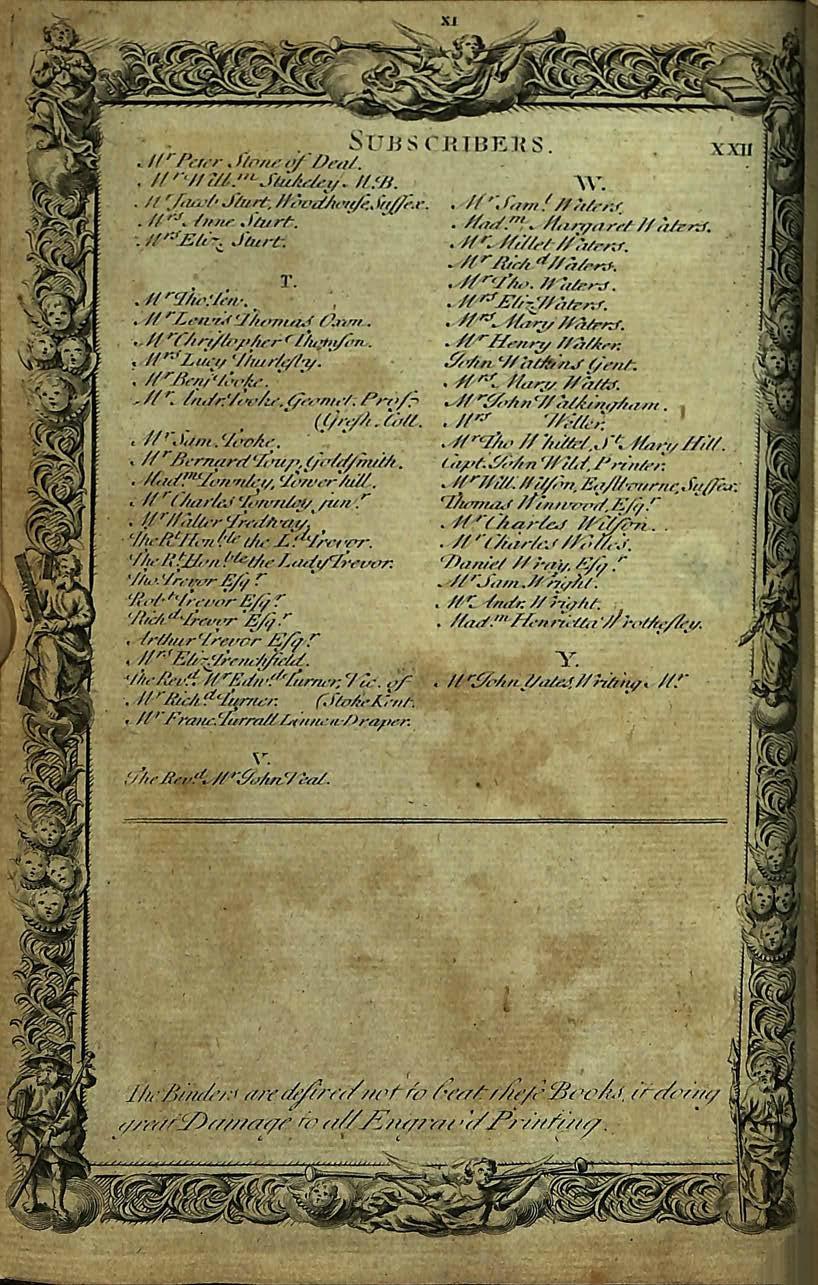 XI
SUBSCRIBERS.
XXII
Mr Peter Stone of Deal.
Mr Will.m Stukeley M.B.
Mr Jacob Sturt, Woodhouſe, Suſſex.
Mrs Anne Sturt.
Mrs Eliz. Sturt.
T.
Mr Tho. Ten.
Mr Lewis Thomas Oxon.
Mr Chriſtopher Thomſon.
Mrs Lucy Thurleſby.
Mr Benj Tooke.
Mr Andr. Tooke, Geomet. Prof.
(Greſh. Coll.
Mr Sam. Tooke.
Mr Bernard Toup, Goldſmith.
Mad.m Townley, Tower hill.
Mr Charles Townley, jun.r
Mr Walter Tredway,
The Rt Hon.ble the L.d Trevor.
The Rt Hon.ble the Lady Trevor.
Tho. Trevor Eſq.r
Rob.t Trevor Eſq.r
Rich.d Trevor Eſq.r
Arthur Trevor Eſq.r
Mrs Eliz. Trenchfield.
The Rev.d Mr Edw.d Turner, Vic. of
Mr Rich.d Turner. (Stoke Kent.
Mr Franc. Turrall Linnen-Draper.
V.
The Rev.d Mr John Veal.
W.
Mr Sam.l Waters.
Mad.m Margaret Waters.
Mr Millet Waters.
Mr Rich.d Waters.
Mr Tho. Waters.
Mrs Eliz. Waters.
Mrs Mary Waters.
Mr Henry Walker.
John Watkins Gent.
Mrs Mary Watts.
Mr John Walkingham.
Mrs Weller.
Mr Tho Whittel, St. Mary Hill.
Capt. John Wild, Printer.
Mr Will. Wilſon, Eaſtbourne, Suſſex.
Thomas Winwood, Eſq.r
Mr Charles Wilſon.
Mr Charles Wolles.
Daniel Wray, Eſq.r
Mr Sam. Wright.
Mr Andr. Wright.
Mad.m Henrietta Wrotheſley.
Y.
Mr John Yates, Writing Mr.
The Binders are deſired not to beat theſe Books, it doing
great Damage to all Engrav'd Printing.